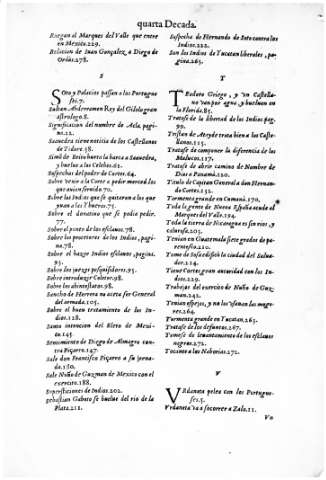 quarta Decada.
Ruegan al Marques del Valle que entre
en Mexico.229.
Relacion de Iuan Gonçalez a Diego de
Ordas.278.
S
SOto y Palacios passan a los Portugue
ses.7.
Sultan Abderramen Rey del Gilolo gran
astrologo.8.
Significacion del numbre de Acla, pagi-
na.22.
Saavedra tiene noticia de los Castellanos
de Tidore.58.
Simõ de Brito hurto la barca a Saavedra,
y buelue a las Celebes.62.
Sospechas del poder de Cortes.64.
Sobre venir a la Corte a pedir merced los
que auien seruido.70.
Sobre las Indias que se quitaron a los que
yuan a las Ybueras.75.
Sobre el donatiuo que se podia pedir.
77.
Sobre el punto de los esclauos.78.
Sobre los protectores de los Indios, pagi-
na.78.
Sobre el hazer Indios esclauos, pagina.
93.
Sobre los juezes pesquisidores.95.
Sobre introduzir Colores.98.
Sobre los abintestatos.98.
Sancho de Herrera no aceta ser General
del armada.105.
Sobre el buen tratamiento de los In-
dios.128.
Santa intencion del Electo de Mexi-
co.145.
Sentimiento de Diego de Almagro con-
tra Piçarro.147.
Sale don Francisco Piçarro a su jorna-
da.150.
Sale Nuño de Guzman de Mexico con el
exercito.188.
Supersticiones de Indios.202.
Sebastian Gaboto se buelue del rio de la
Plata.211.
Sospecha de Hernando de Soto contra los
Indios.222.
Son los Indios de Yucatan liberales, pa-
gina.265.
T
TEodoro Griego, y vn Castella-
no van por agua, y bueluen en
la Florida.85.
Tratase de la libertad de los Indios pag.
99.
Tristan de Atayde trata bien a los Caste-
llanos.115.
Tratase de componer la diferencia de los
Malucos.117.
Tratase de abrir camino de Nombre de
Dios a Panamà.120.
Titulo de Capitan General a don Hernan-
do Cortes.132.
Tormenta grande en Cumanà.170.
Toda la gente de Nueua España acude al
Marques del Valle.194.
Toda la tierra de Nicaragua es sin rios, y
calurosa.203.
Tienen en Guatemala siete grados de pa-
rentesco.210.
Tome de Sosa edificò la ciudad del Salua-
dor.214.
Tiene Cortes gran autoridad con los In-
dios.229.
Trabajos del exercito de Nuño de Guz-
man.242.
Tenian espejos, y no los vsauan las muge-
res.264.
Tormenta grande en Yucatan.265.
Tratase de los defuntos.267.
Temese de leuantamiento de los esclauos
negros.272.
Tocante a las Naborias.272.
V
VRdaneta pelea con los Portugue-
ses.5.
Vrdaneta va a socorrer a Zalo.11.
Va